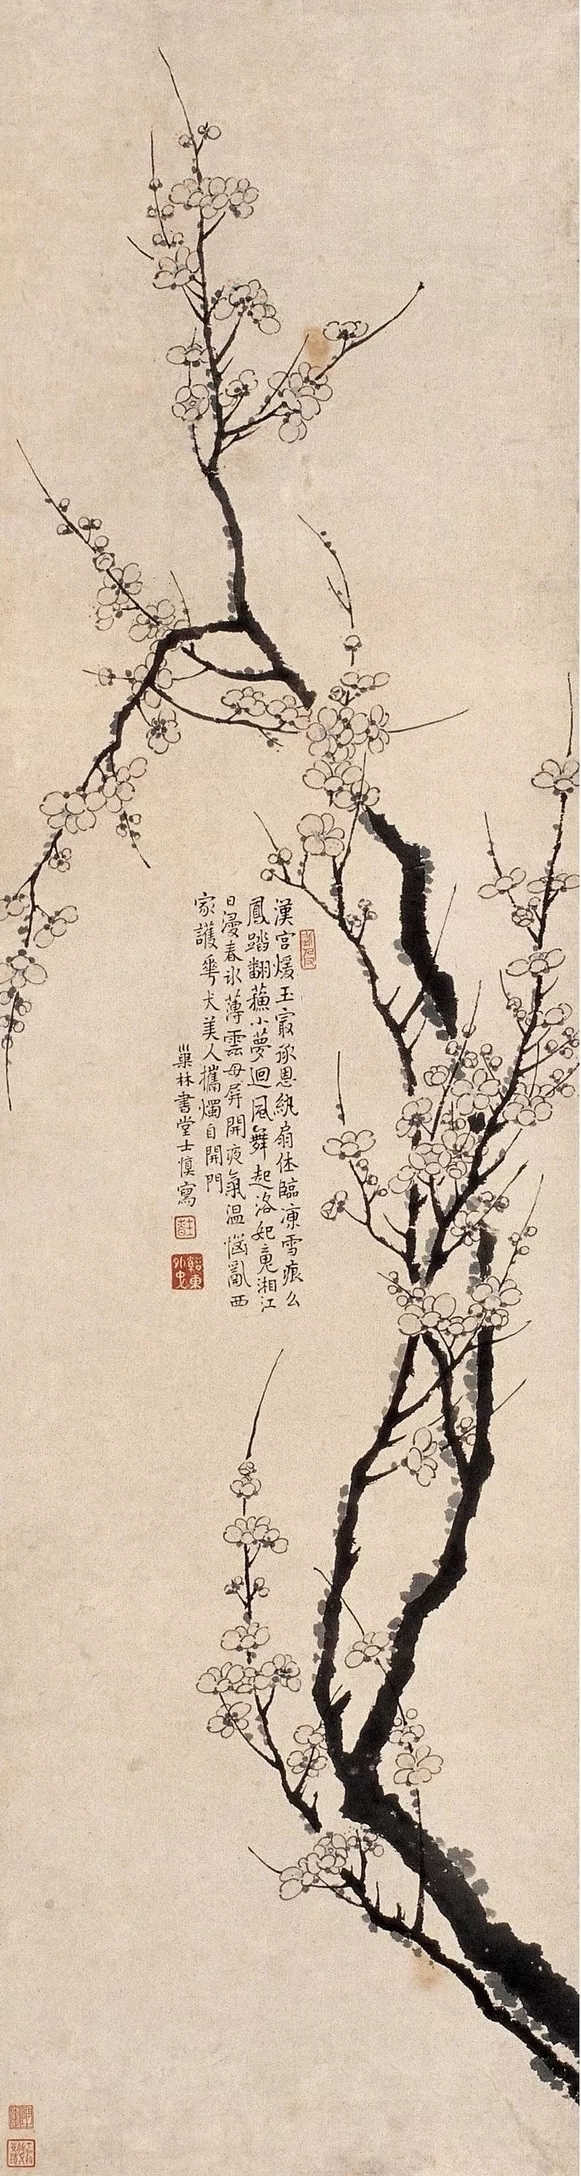 漢宮煖玉寂承恩紈扇体臨凍雪痕么
鳳踏翻蘓小夢迴風舞起洛妃䰟湘江
日漫春氷薄雲母屏開夜氣温惱亂西
家護花犬美人攜燭自開門
巢林書堂士慎寫